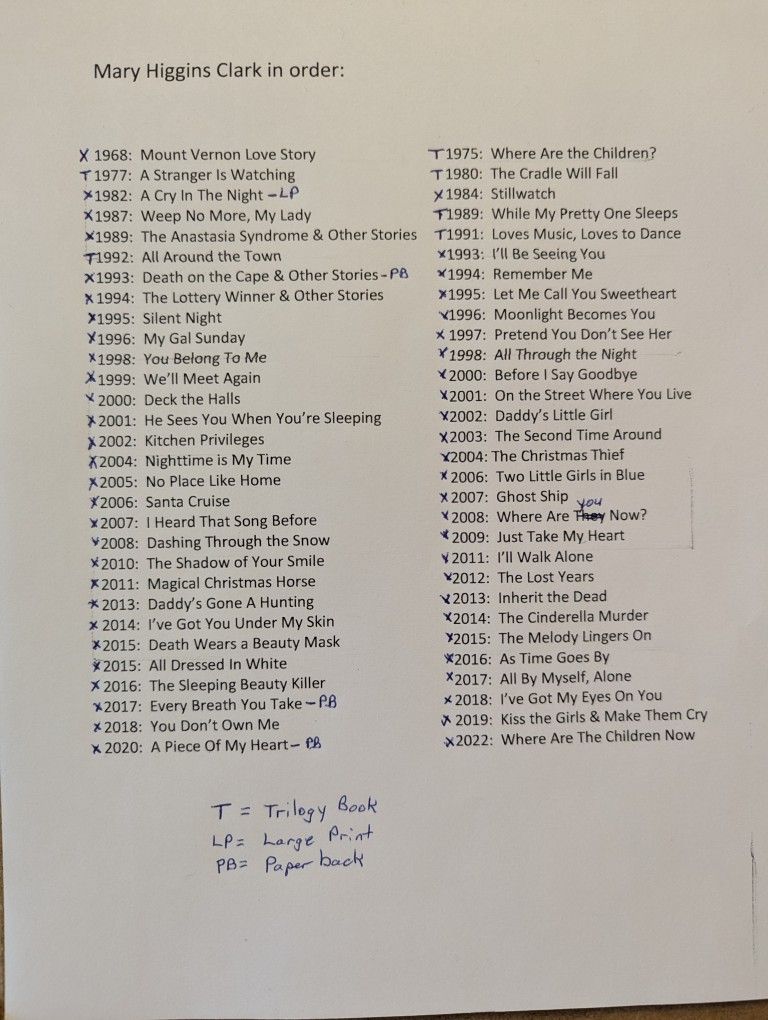 Mary Higgins Clark in order:
X 1968: Mount Vernon Love Story
T 1977: A Stranger Is Watching
X 1982: A Cry In The Night – LP
X 1987: Weep No More, My Lady
X 1989: The Anastasia Syndrome & Other Stories
T 1992: All Around the Town
X 1993: Death on the Cape & Other Stories – PB
X 1994: The Lottery Winner & Other Stories
X 1995: Silent Night
X 1996: My Gal Sunday
X 1998: You Belong To Me
X 1999: We'll Meet Again
X 2000: Deck the Halls
X 2001: He Sees You When You're Sleeping
X 2002: Kitchen Privileges
X 2004: Nighttime is My Time
X 2005: No Place Like Home
X 2006: Santa Cruise
X 2007: I Heard That Song Before
X 2008: Dashing Through the Snow
X 2010: The Shadow of Your Smile
X 2011: Magical Christmas Horse
X 2013: Daddy's Gone A Hunting
X 2014: I've Got You Under My Skin
X 2015: Death Wears a Beauty Mask
X 2015: All Dressed In White
X 2016: The Sleeping Beauty Killer
X 2017: Every Breath You Take – PB
X 2018: You Don't Own Me
X 2020: A Piece Of My Heart – PB
T 1975: Where Are the Children?
T 1980: The Cradle Will Fall
X 1984: Stillwatch
T 1989: While My Pretty One Sleeps
T 1991: Loves Music, Loves to Dance
X 1993: I'll Be Seeing You
X 1994: Remember Me
X 1995: Let Me Call You Sweetheart
X 1996: Moonlight Becomes You
X 1997: Pretend You Don't See Her
X 1998: All Through the Night
X 2000: Before I Say Goodbye
X 2001: On the Street Where You Live
X 2002: Daddy's Little Girl
X 2003: The Second Time Around
X 2004: The Christmas Thief
X 2006: Two Little Girls in Blue
X 2007: Ghost Ship
you
X 2008: Where Are They Now?
X 2009: Just Take My Heart
X 2011: I'll Walk Alone
X 2012: The Lost Years
X 2013: Inherit the Dead
X 2014: The Cinderella Murder
X 2015: The Melody Lingers On
X 2016: As Time Goes By
X 2017: All By Myself, Alone
X 2018: I've Got My Eyes On You
X 2019: Kiss the Girls & Make Them Cry
X 2022: Where Are The Children Now
T = Trilogy Book
LP = Large Print
PB = Paper back